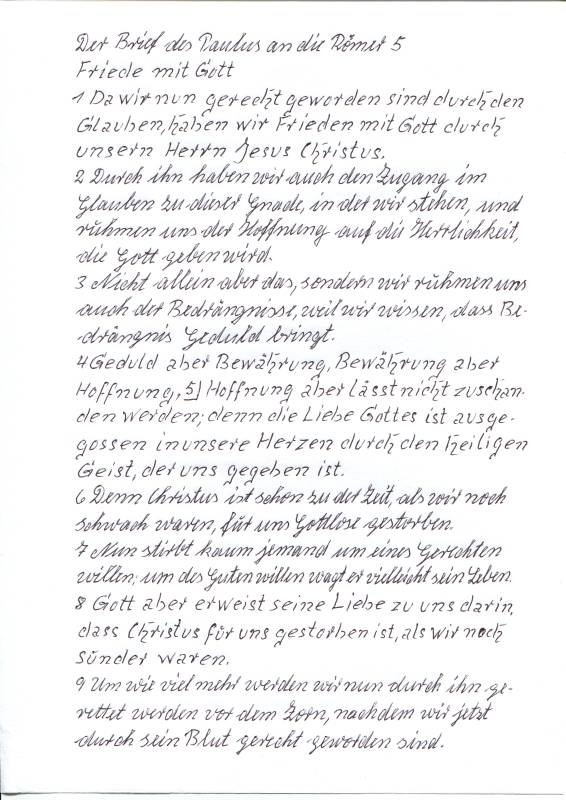 Der Brief des Paulus an die Römer 5
Friede mit Gott
1 Da wir nun gerecht geworden sind durch den
Glauben, haben wir Frieden mit Gott durch
unsern Herrn Jesus Christus.
2 Durch ihn haben wir auch den Zugang im
Glauben zu dieser Gnade, in der wir stehen, und
rühmen uns der Hoffnung auf die Herrlichkeit,
die Gott geben wird.
3 Nicht allein aber das, sondern wir rühmen uns
auch der Bedrängnisse, weil wir wissen, dass Be-
drängnis Geduld bringt.
4 Geduld aber Bewährung, Bewährung aber
Hoffnung, 5) Hoffnung aber lässt nicht zuschan-
den werden; denn die Liebe Gottes ist ausge-
gossen in unsere Herzen durch den heiligen
Geist, der uns gegeben ist.
6 Denn Christus ist schon zu der Zeit, als wir noch
schwach waren, für uns Gottlose gestorben.
7 Nun stirbt kaum jemand um eines Gerechten
willen; um des Guten willen wagt er vielleicht sein Leben.
8 Gott aber erweist seine Liebe zu uns darin,
dass Christus für uns gestorben ist, als wir noch
Sünder waren.
9 Um wie viel mehr werden wir nun durch ihn ge-
rettet werden vor dem Zorn, nachdem wir jetzt
durch sein Blut gerecht geworden sind.